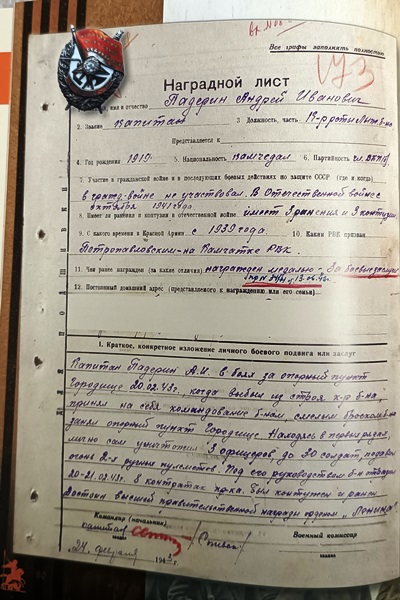 Все графы заполнять полностью
173
Наградной лист
имя и отчество Падерин Андрей Иванович
2. Звание капитан 3. Должность, часть
Представляется к
4. Год рождения 1919 5. Национальность камчедал 6. Партийность чл. ВКП(б)
7. Участие в гражданской войне и в последующих боевых действиях по защите СССР (где и когда)
в гражд. войне не участвовал. В Отечественной войне с
октября 1941 года
8. Имеет ли ранения и контузии в отечественной войне имеет 3 ранения и 3 контузии
9. С какого времени в Красной Армии с 1939 года 10. Каким РВК призван
Петропавловским-на Камчатке РВК.
11. Чем ранее награжден (за какие отличия) награжден медалью - За боевые заслуги
12. Постоянный домашний адрес (представляемого к награждению или его семьи)
I. Краткое, конкретное изложение личного боевого подвига или заслуг
Капитан Падерин А.И. в боях за опорный пункт
Городище 20.02.43г., когда выбыл из строя к-р б-на,
принял на себя командование б-ном, смелым броском б-на
занял опорный пункт Городище. Находясь в первых рядах,
лично сам уничтожил 3 офицеров до 30 солдат, подавил
огонь 2-х ручных пулеметов. Под его руководством б-н отбил
20-21.02.43г. 8 контратак пр-ка. Был контужен и ранен.
Достоин высшей правительственной награды орденом „Ленина“.
Командир (начальник)
капитан
Военный комиссар
звание
24 февраля 194